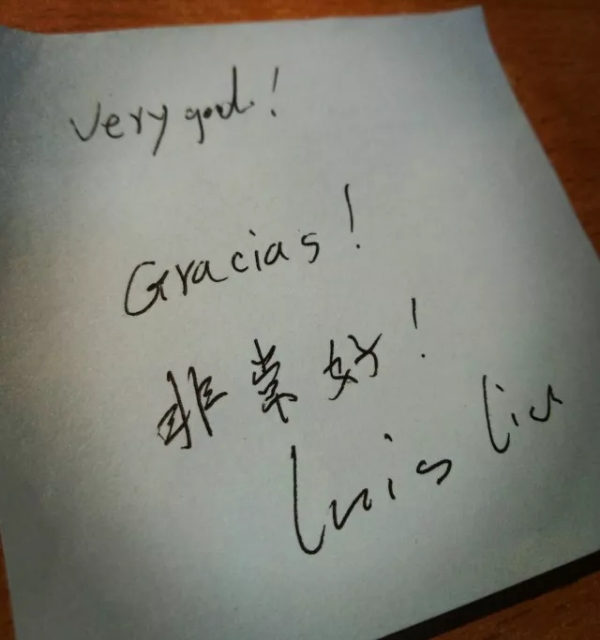 Very good!
Gracias!
非常好!
Luis Liu